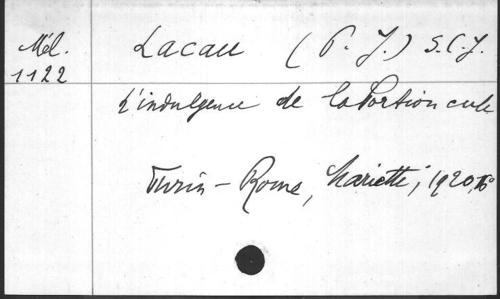 Mél.
1122
Lacau (P. J.) S.C.J.
L'indulgence de la Portioncule
Turin - Rome, Marietti, 1920,